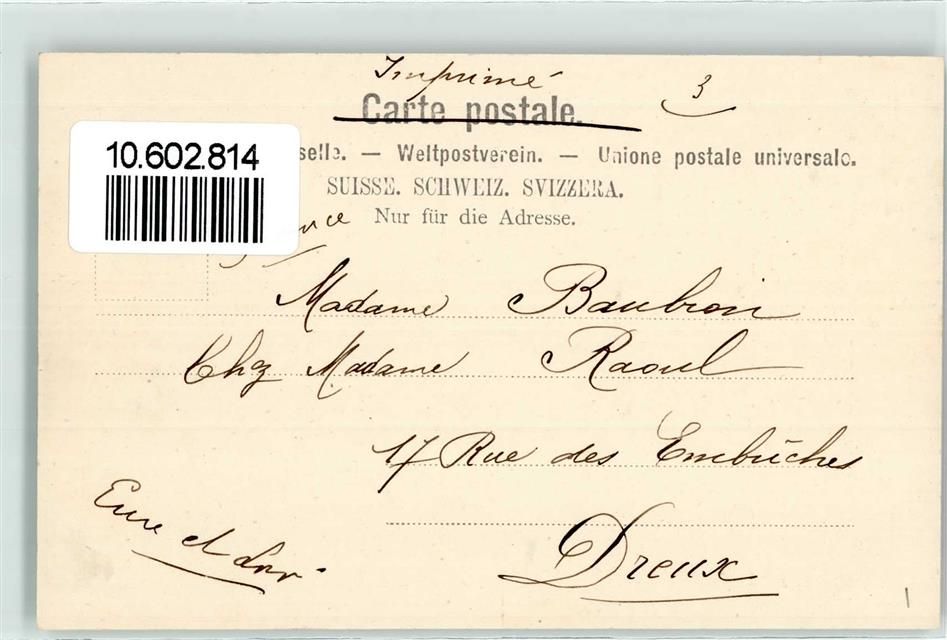 Imprimé 3
Carte postale.
10.602.814
selle. — Weltpostverein. — Unione postale universale.
SUISSE. SCHWEIZ. SVIZZERA.
Nur für die Adresse.
Madame Baubion
Chez Madame Raoul
17 Rue des Embûches
Eure et Loir
Dreux